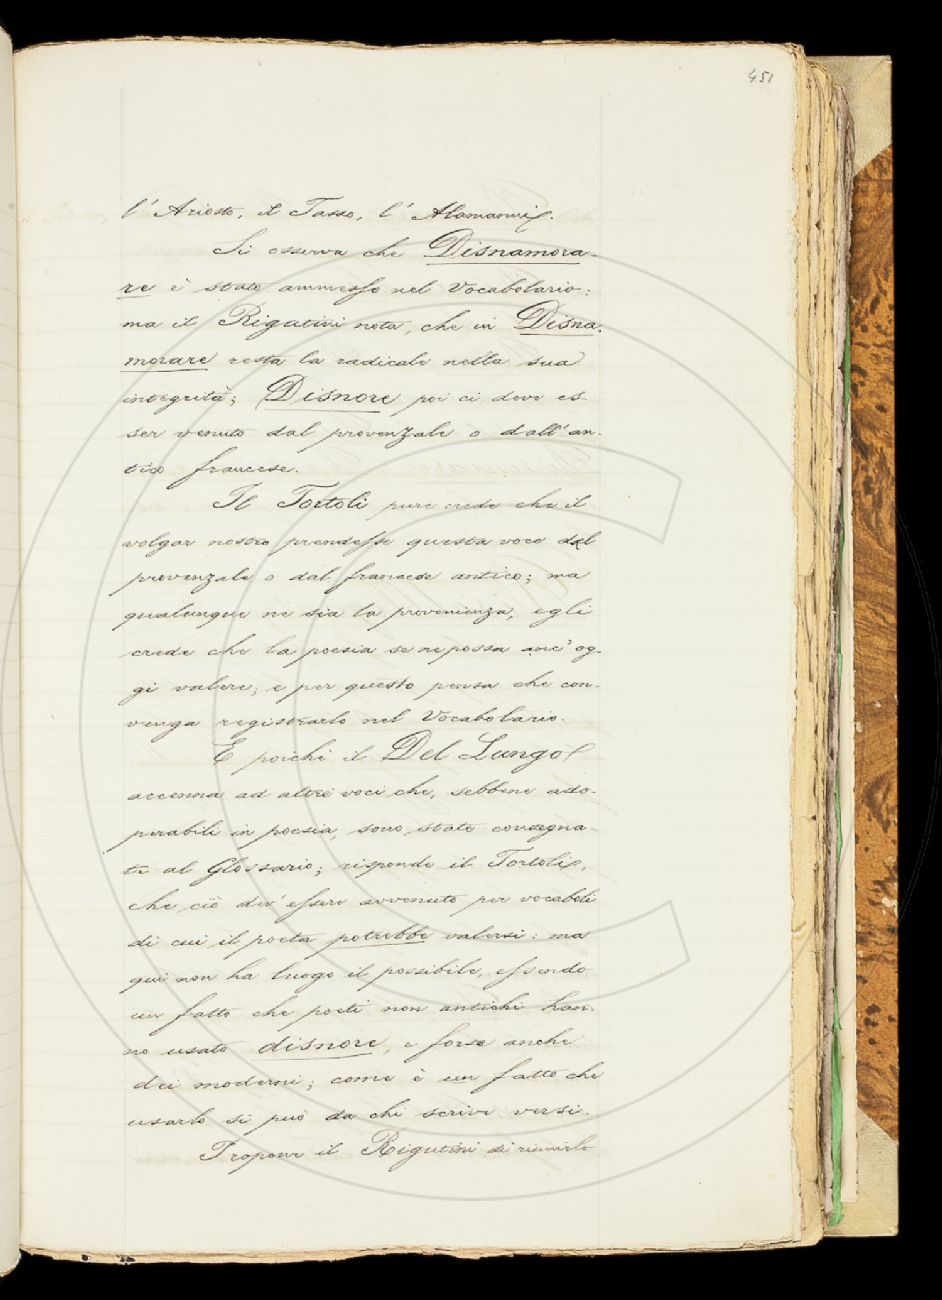 451
l'Ariosto, il Tasso, l'Alamanni.
Si osserva che Disnamora-
re è stato ammesso nel Vocabolario;
ma il Rigutini nota, che in Disna-
morare resta la radicale nella sua
integrità; Disnore poi ci deve es-
ser venuto dal provenzale o dall'an-
tico francese.
Il Tortoli pure crede che il
volgar nostro prendesse questa voce dal
provenzale o dal francese antico; ma
qualunque ne sia la provenienza, egli
crede che la poesia se ne possa anc'og-
gi valere; e per questo pensa che con-
venga registrarlo nel Vocabolario.
E poichè il Del Lungo
accenna ad altre voci che, sebbene ado-
perabili in poesia, sono state consegna-
te al Glossario; risponde il Tortoli,
che ciò dev'essere avvenuto per vocaboli
di cui il poeta potrebbe valersi: ma
qui non ha luogo il possibile, essendo
un fatto che poeti non antichi han-
no usato disnore, e forse anche
dei moderni; come è un fatto che
usarlo si può da chi scrive versi.
Propone il Rigutini di riunirlo